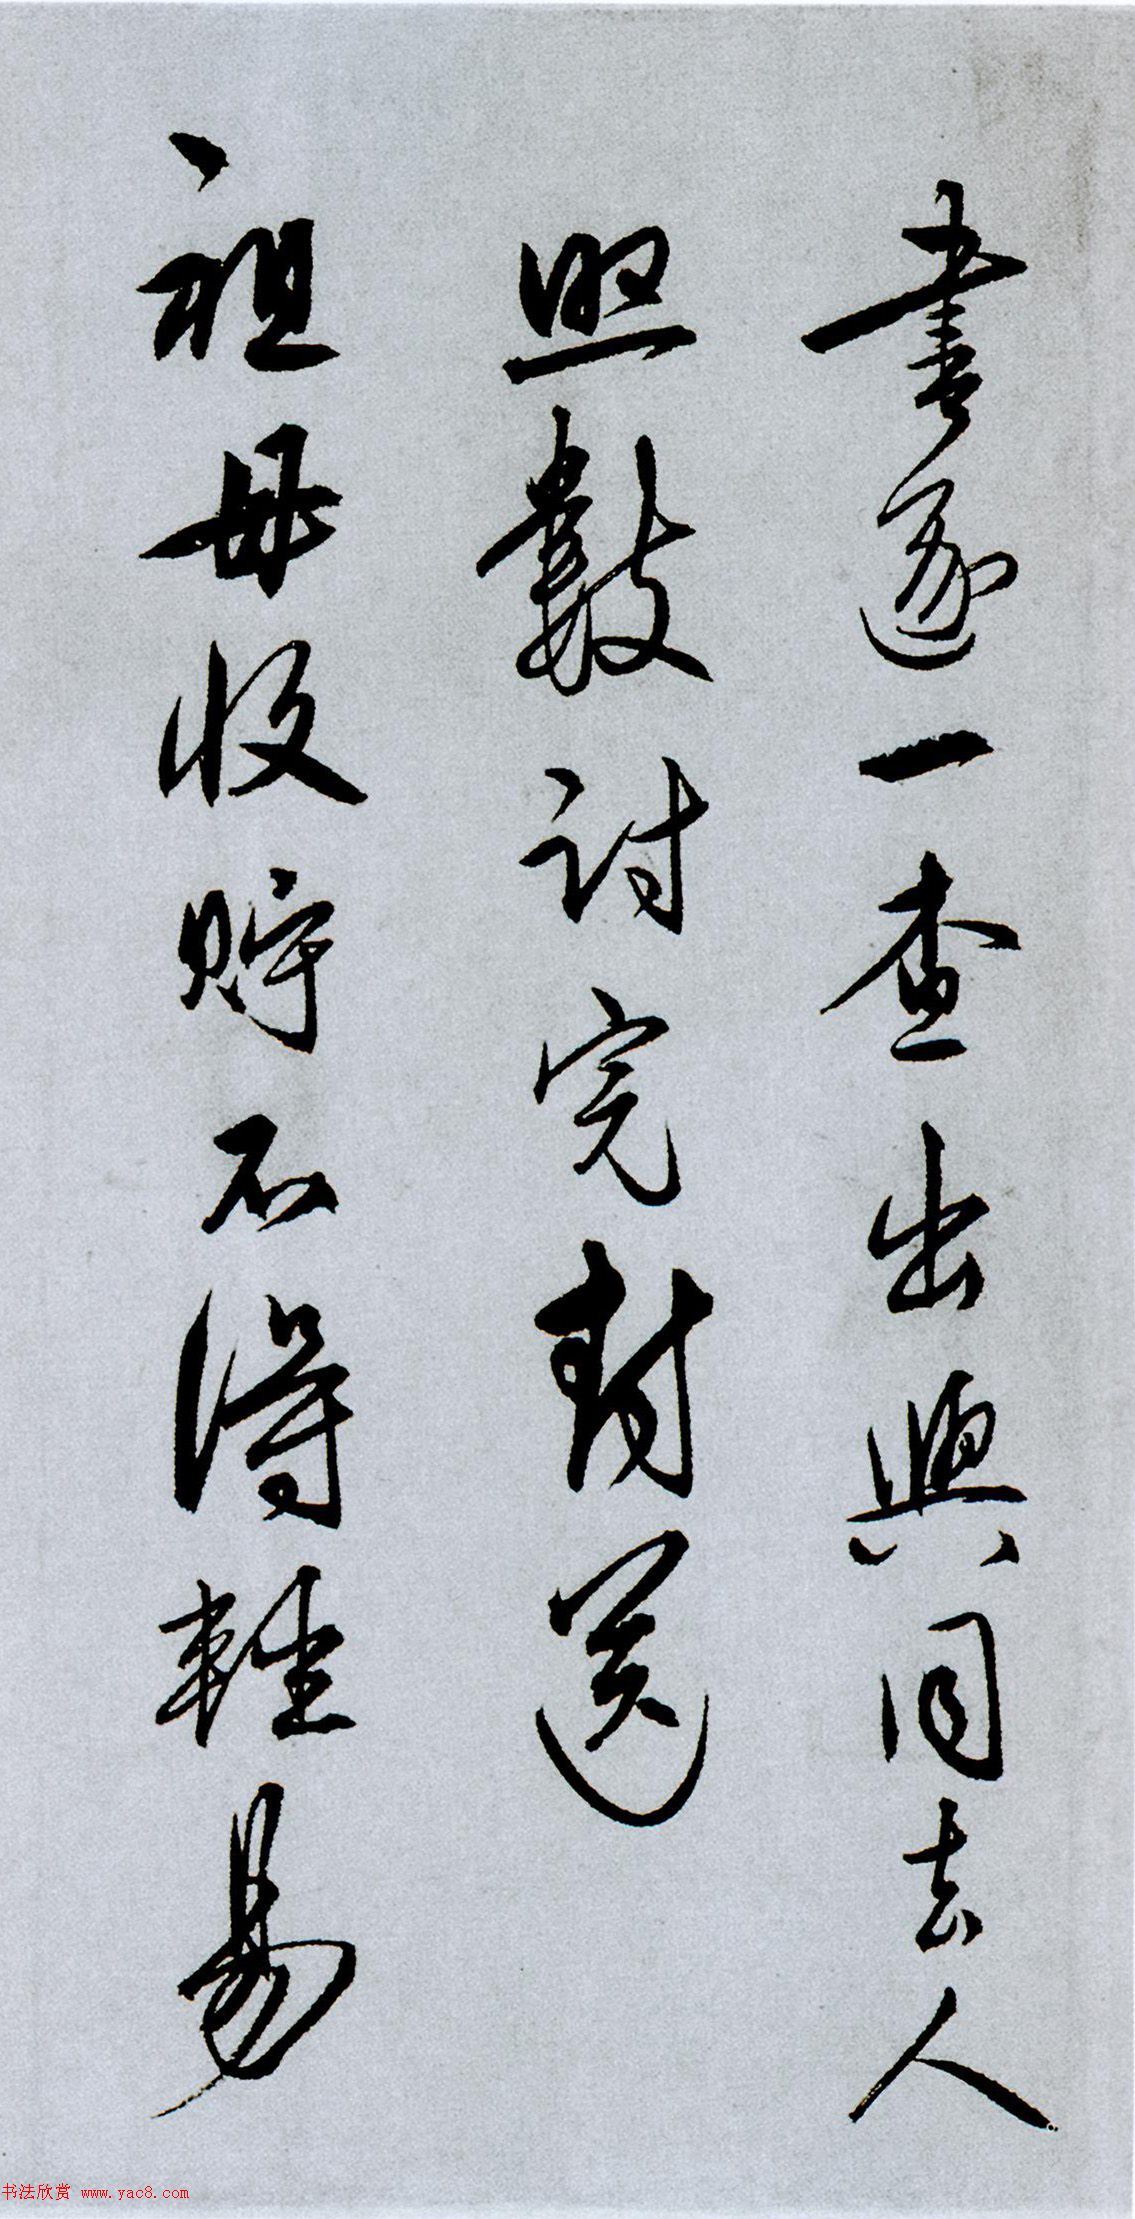 書逐一查出與同去人
照數討完封送
祖母收貯不得輕易
书法欣赏 www.yac8.com